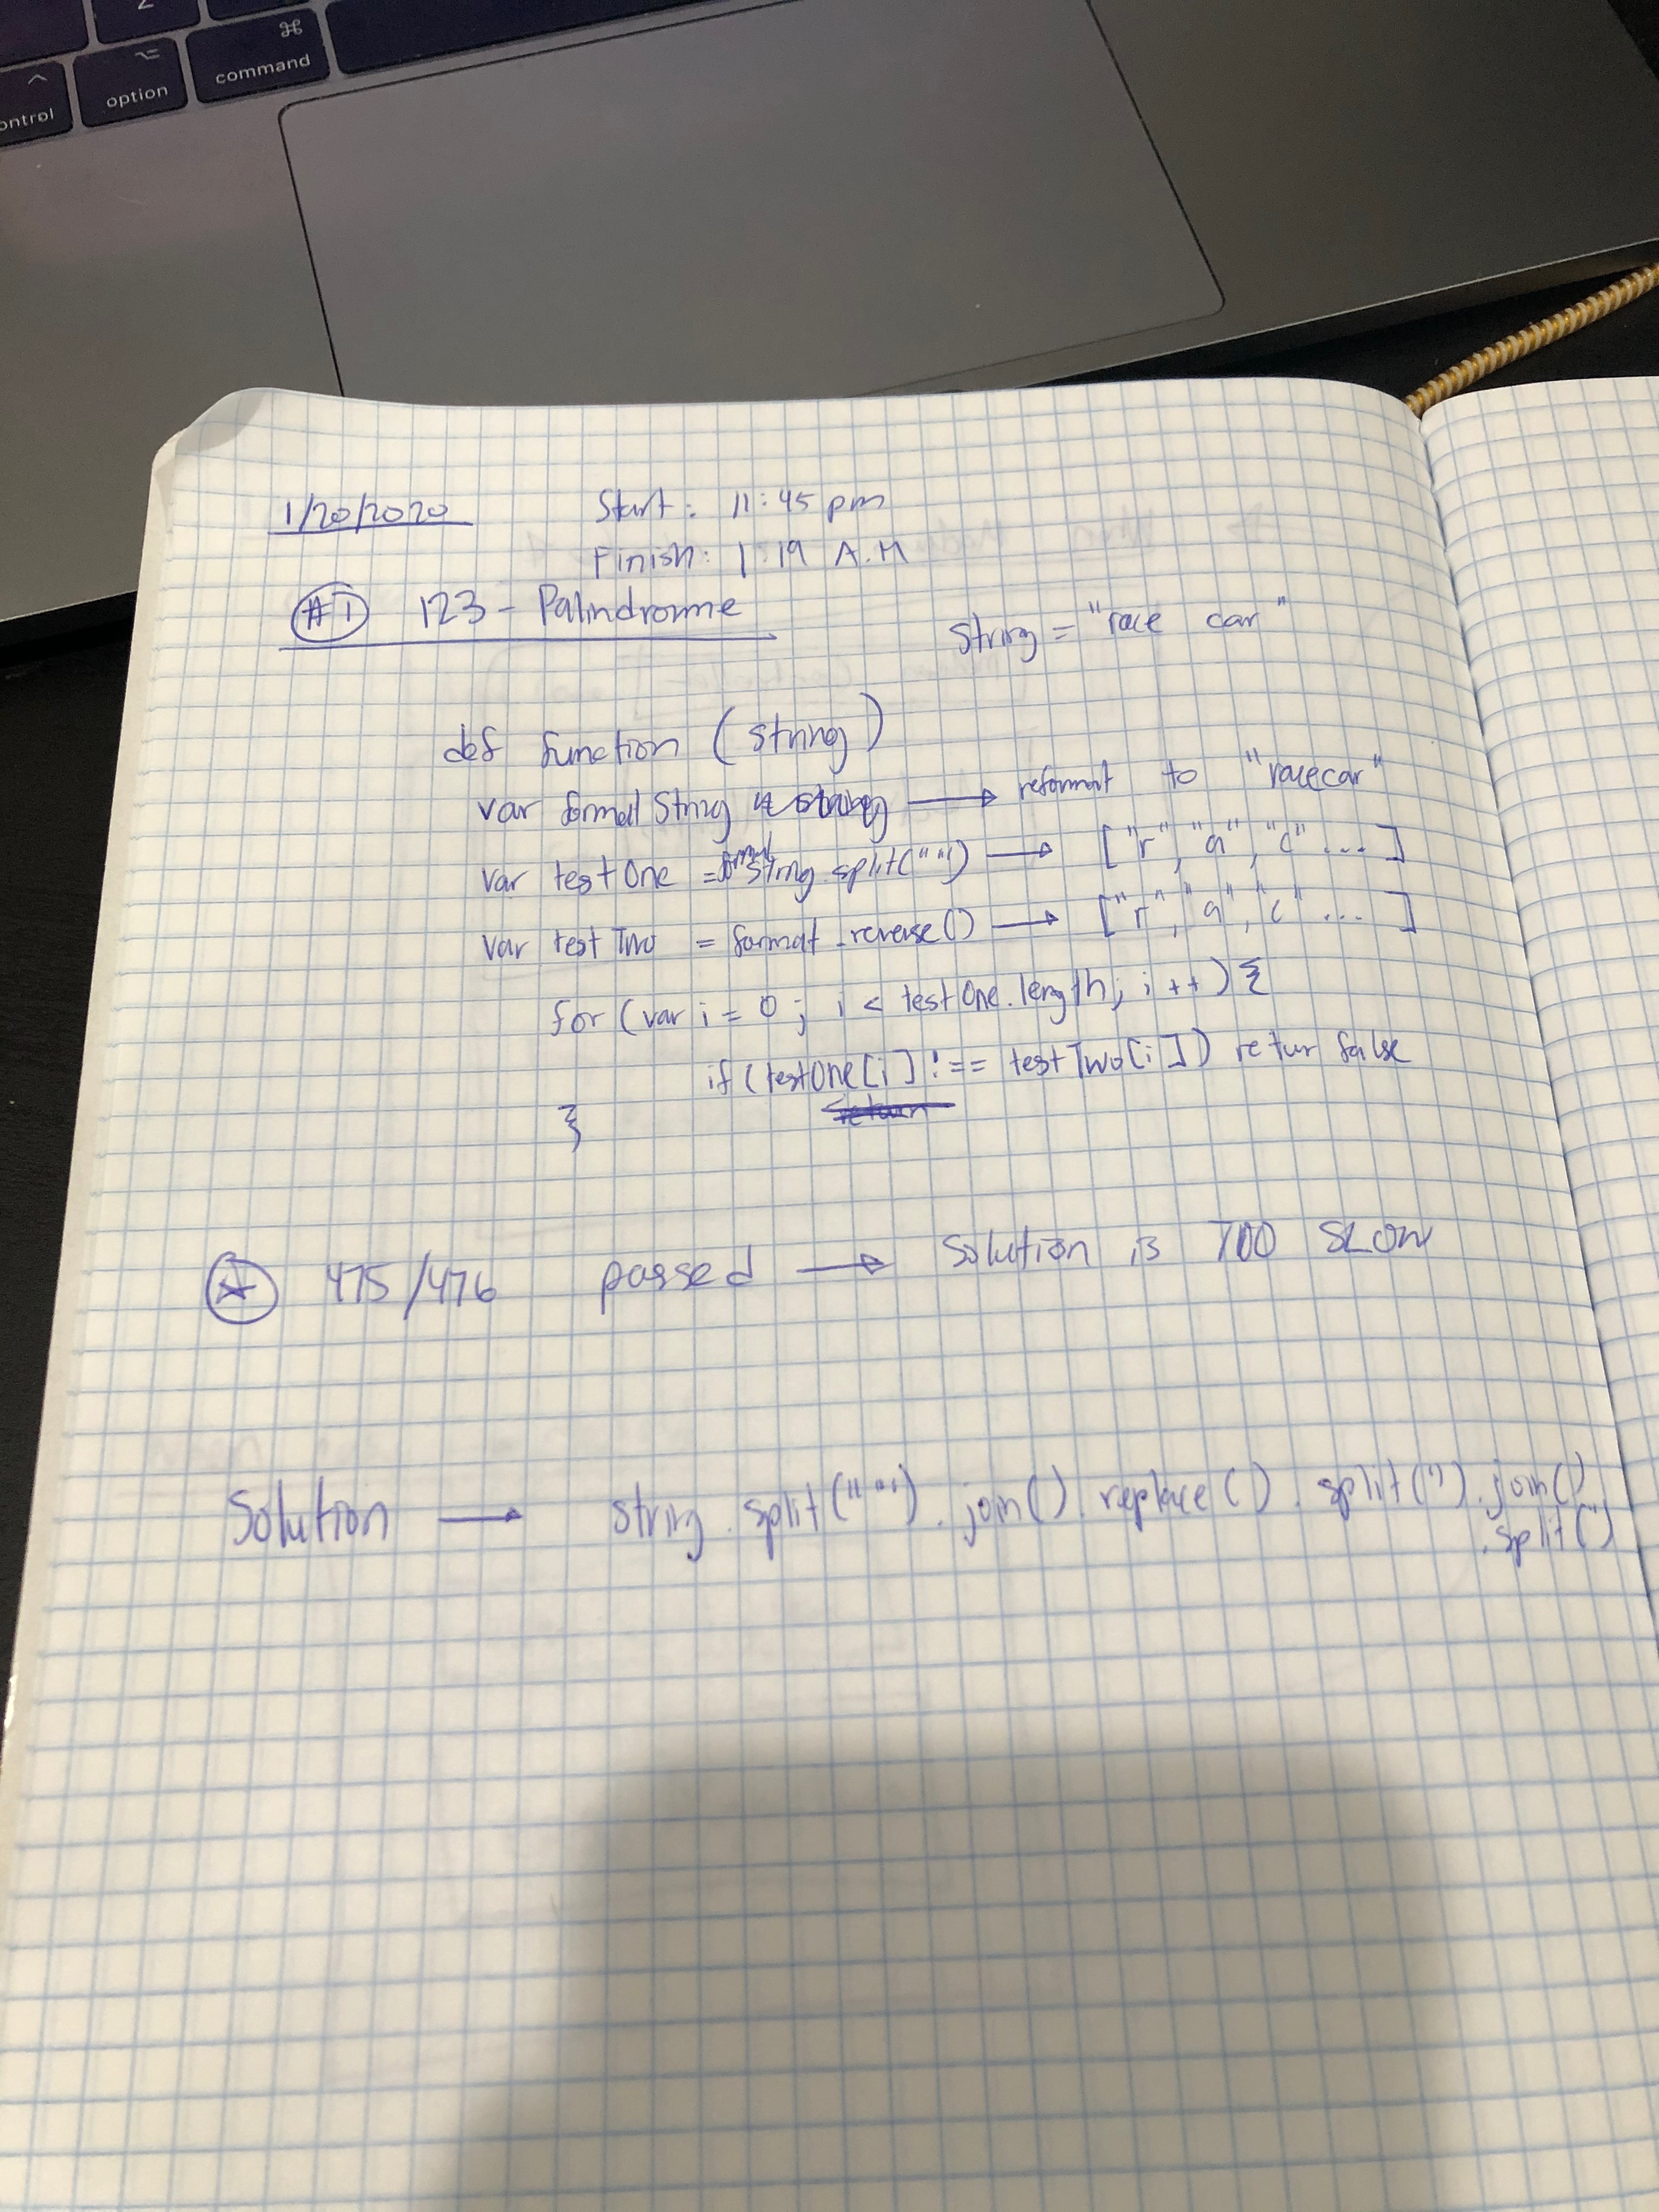 command
option
ontrol
1/20/2020 Start: 11:45 pm
Finish: 1:19 A.M
#1 123 - Palindrome
string = "race car"
def function (string)
var format String → reformat to "racecar"
var testOne = format String.split("") → ["r", "a", "c" ... ]
var testTwo = format.reverse() → ["r", "a", "c" ... ]
for (var i = 0; i < testOne.length; i++) {
if (testOne[i] !== testTwo[i]) retur false
return
}
475/476 passed → Solution is TOO SLOW
Solution → string.split(" ").join().replace().split('').join()
.split('')